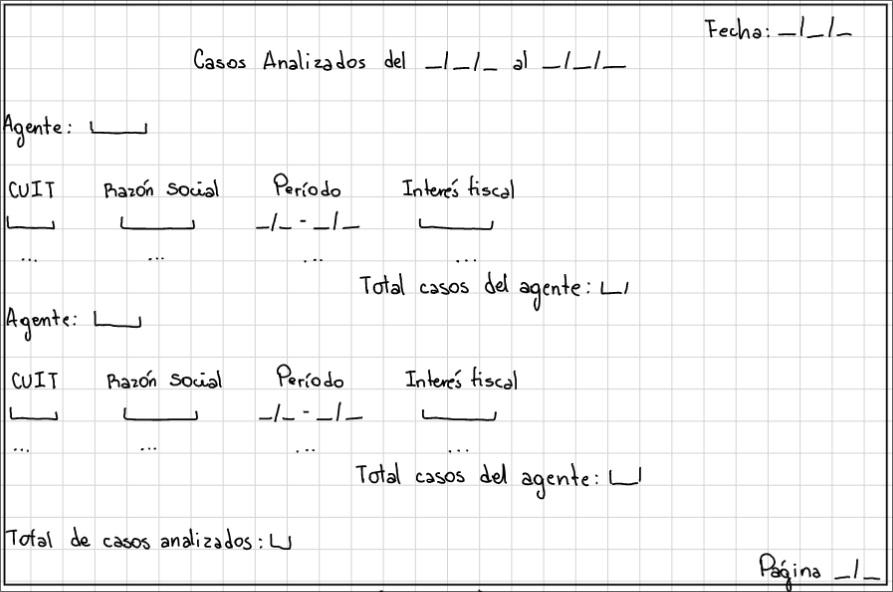 Fecha: _/_/_
Casos Analizados del _/_/_ al _/_/_
Agente:
CUIT Razón Social Período Interés fiscal
_/_ - _/_
... ... ... ...
Total casos del agente:
Agente:
CUIT Razón Social Período Interés fiscal
_/_ - _/_
... ... ... ...
Total casos del agente:
Total de casos analizados:
Página _/_